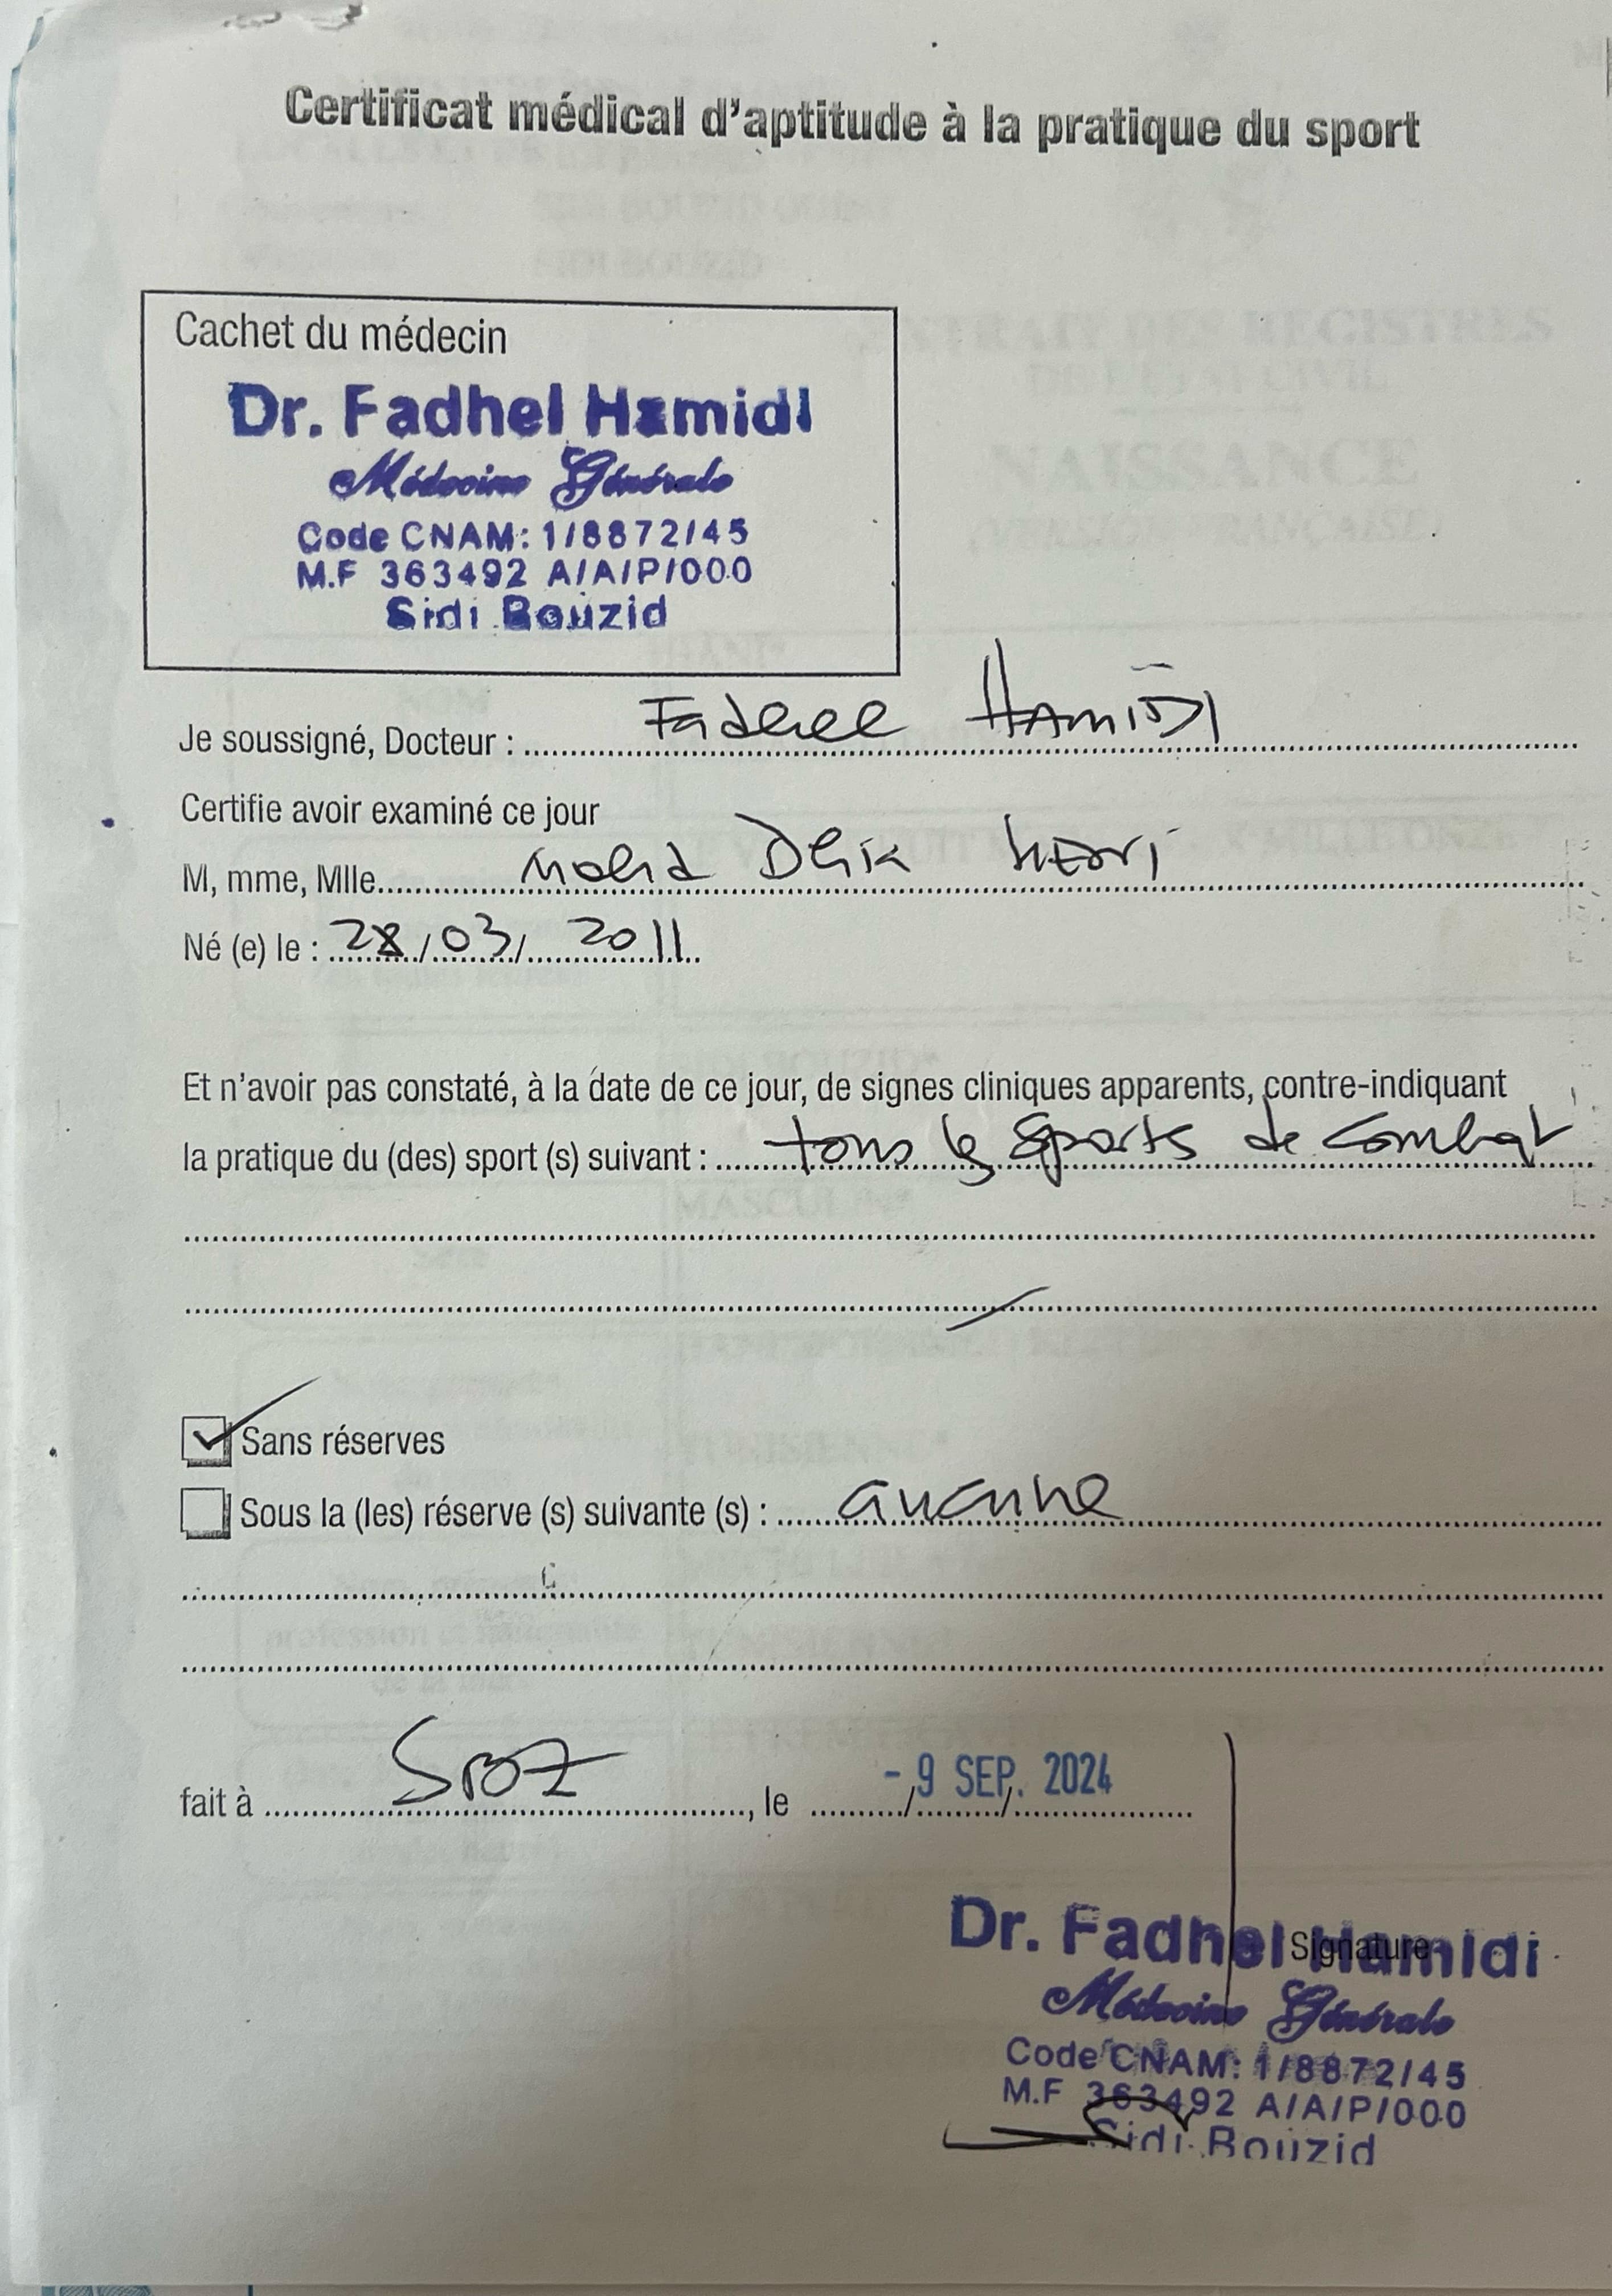 Certificat médical d'aptitude à la pratique du sport
Cachet du médecin
Dr. Fadhel Hamidi
Médecine Générale
Code CNAM: 1/8872/45
M.F 363492 A/A/P/000
Sidi Bouzid
Je soussigné, Docteur : Fadhel HAMIDI
Certifie avoir examiné ce jour
M, mme, Mlle. Mohd
Né (e) le : 28/03/2011
Et n'avoir pas constaté, à la date de ce jour, de signes cliniques apparents, contre-indiquant
la pratique du (des) sport (s) suivant : tous les sports de combat
Sans réserves
Sous la (les) réserve (s) suivante (s) : aucune
fait à SBZ, le - 9 SEP. 2024
Signature
Dr. Fadhel Hamidi
Médecine Générale
Code CNAM: 1/8872/45
M.F 363492 A/A/P/000
Sidi Bouzid